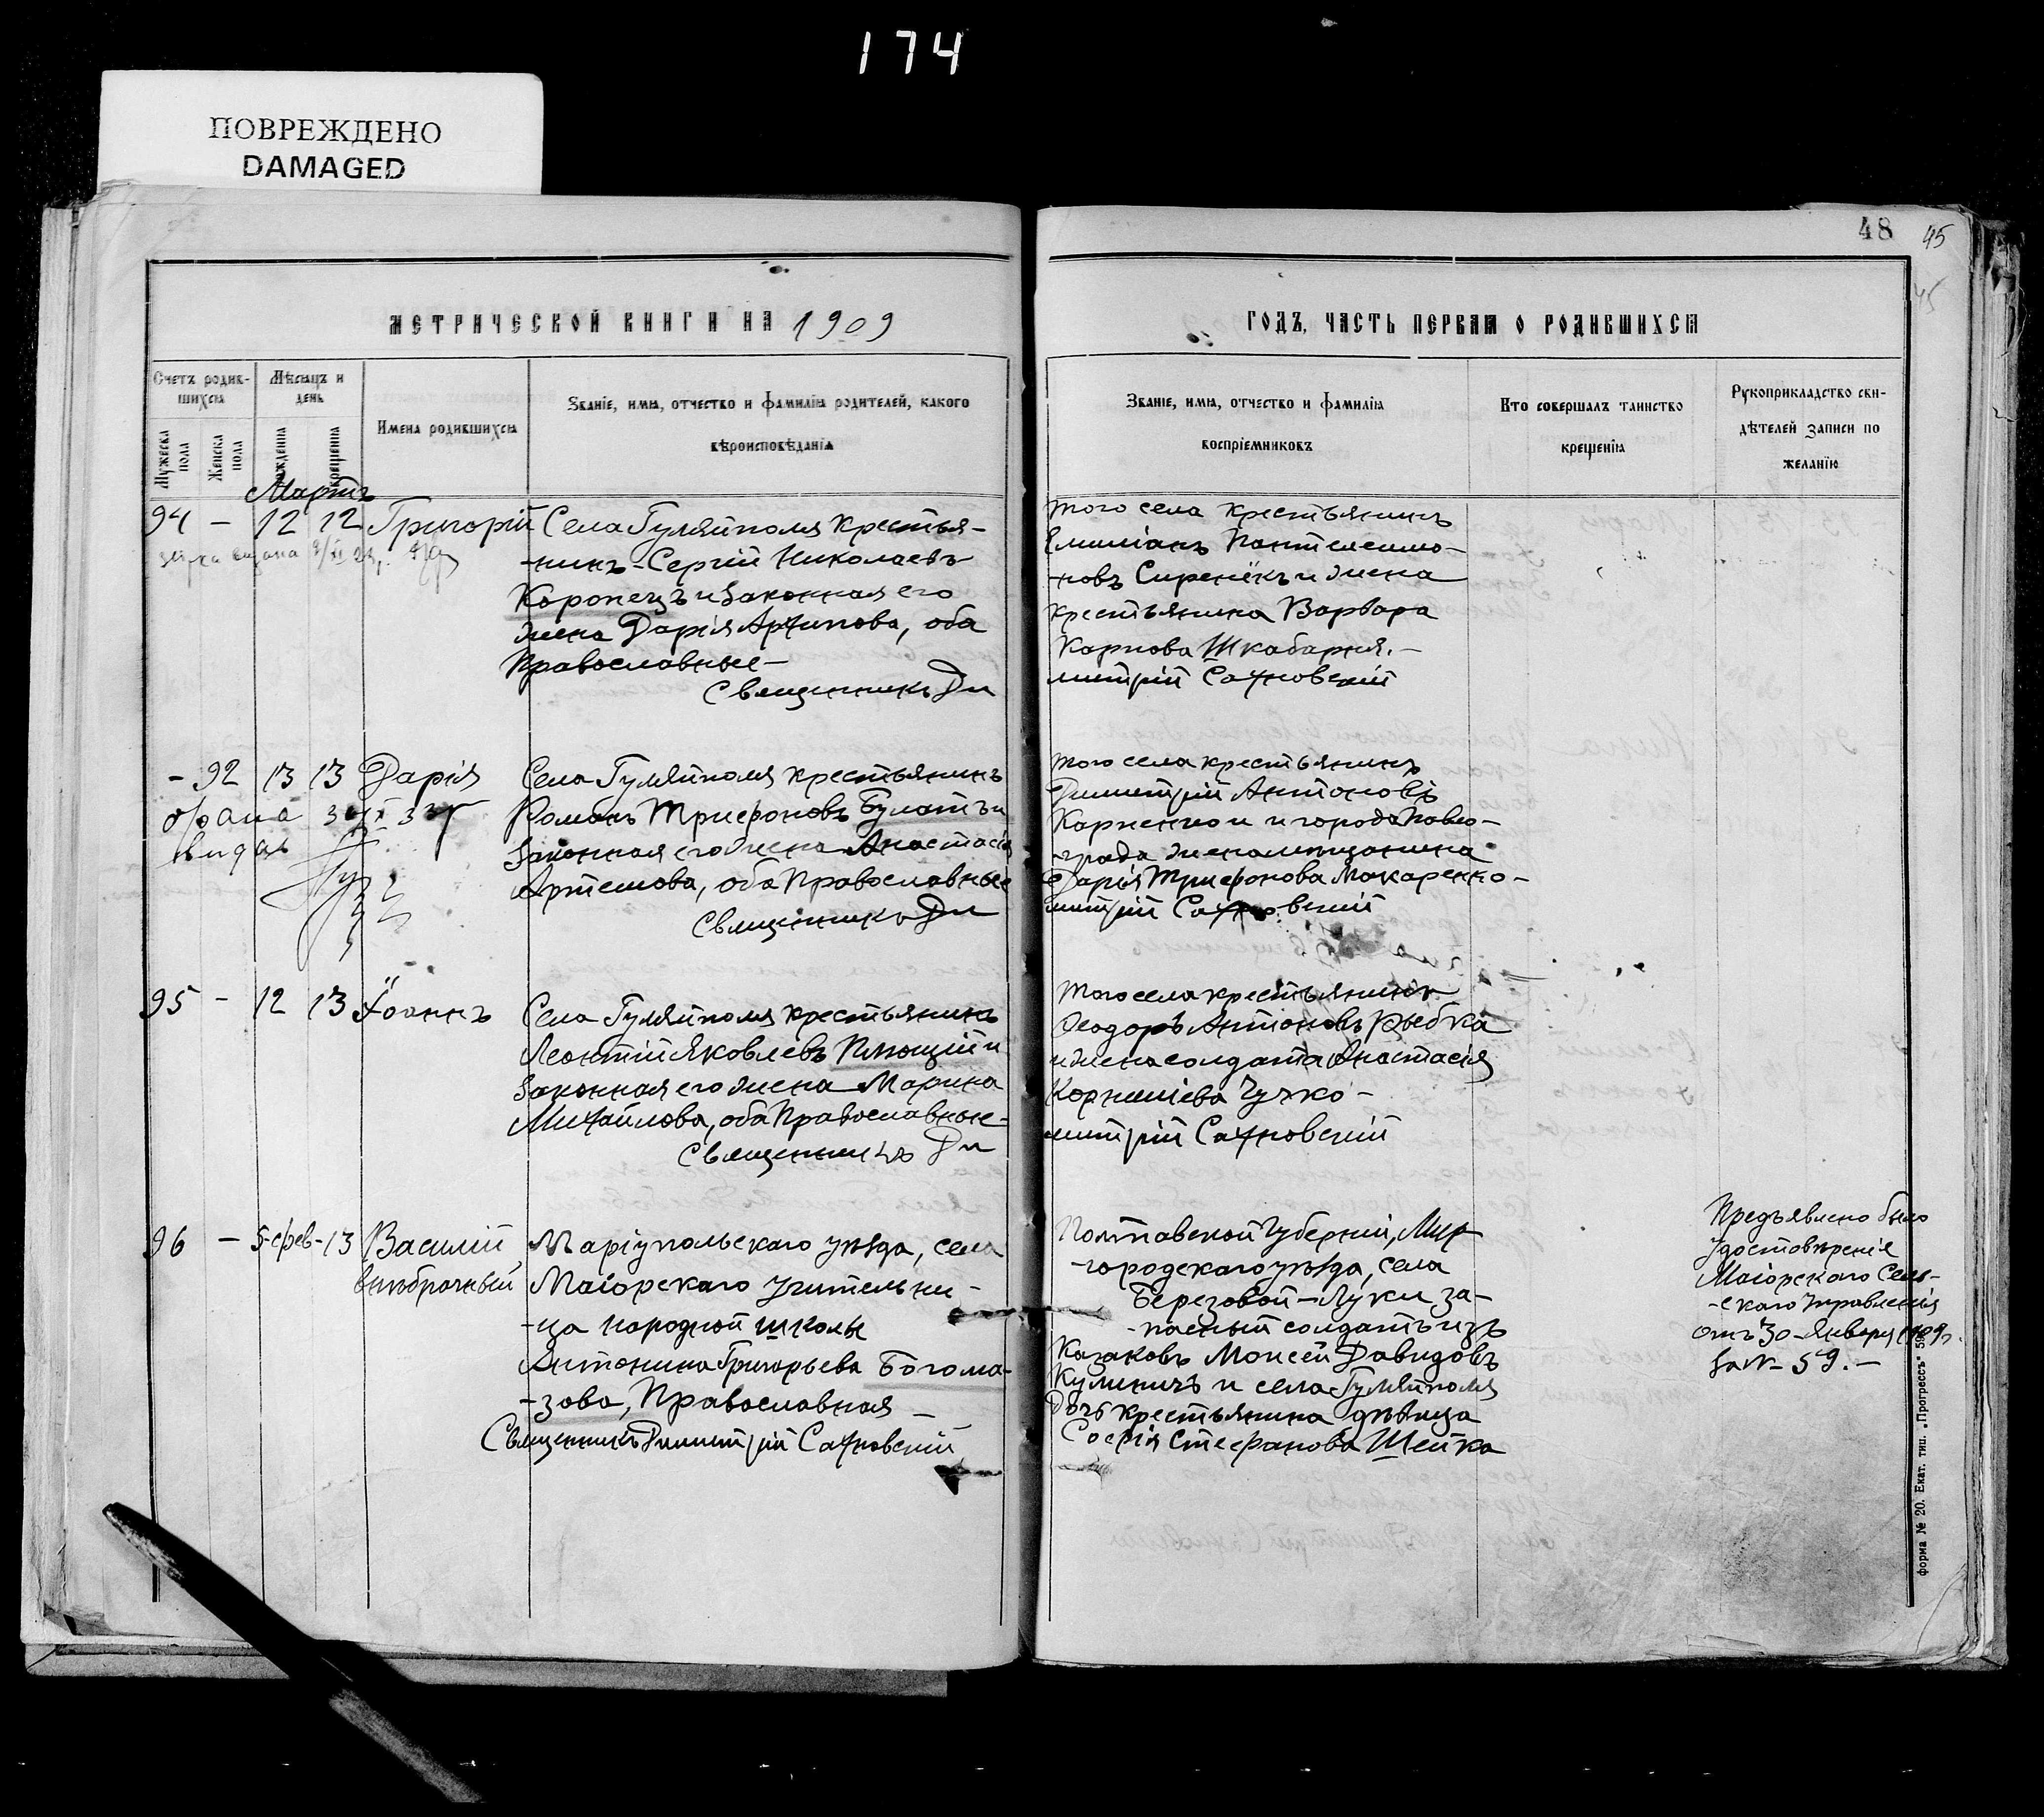 174
ПОВРЕЖДЕНО
DAMAGED
48 45
45
МЕТРИЧЕСКОЙ КНИГИ НА 1909
ГОДЪ, ЧАСТЬ ПЕРВАЯ О РОДИВШИХСЯ
Счетъ родив-
шихся
Мужеска пола
Женска пола
Мѣсяцъ и
день
рожденія
крещенія
Имена родившихся
Званіе, имя, отчество и фамилія родителей, какого
вѣроисповѣданія
Званіе, имя, отчество и фамилія
воспріемниковъ
Кто совершалъ таинство
крещенія
Рукоприкладство сви-
дѣтелей записи по
желанію
Мартъ
94 - 12 12 Григорій
Села Гуляйполя крестья-
-нинъ Сергій Николаевъ
Коропецъ и законная его
жена Дарія Архипова, оба
православные-
Священникъ Ди
того села крестьянинъ
Емиліанъ Пантелеимо-
-новъ Сиренекъ и жена
крестьянина Варвара
Карпова Шкабарня.-
митрій Сахновскій
- 92 13 13 Дарія
Села Гуляйполя крестьянинъ
Романъ Трифоновъ Булатъ и
законная его жена Анастасія
Артемова, оба Православные
Священникъ Ди
того села крестьянинъ
Димитрій Антоновъ
Карпенко и города Павло-
-града жена мѣщанина
Дарія Трифонова Макаренко-
митрій Сахновскій
95 - 12 13 Іоаннъ
Села Гуляйполя крестьянинъ
Леонтій Яковлевъ Плющій и
законная его жена Марина
Михайлова, оба Православные-
Священникъ Ди
того села крестьянинъ
Ѳеодоръ Антоновъ Рыбка
и жена солдата Анастасія
Корниліева Чучко-
митрій Сахновскій
96 - 5-фев-13 Василій
внѣбрачный
Маріупольскаго уѣзда, села
Маіорскаго учительни-
-ца народной школы
Антонина Григорьева Богома-
-зова, Православная -
Священникъ Димитрій Сахновскій
Полтавской губерніи, Мир-
-городскаго уѣзда, села
Березовой-Луки за-
-пасный солдатъ изъ
казаковъ Моисей Давидовъ
Куличъ и села Гуляйполя
дочь крестьянина дѣвица
Софія Стефанова Шейко
Предъявлено было
удостовѣреніе
Маіорскаго Сель-
-скаго Управленія
отъ 30 Января 1909г.
за № 59.-
форма № 20. Екат. тип. „Прогрессъ"